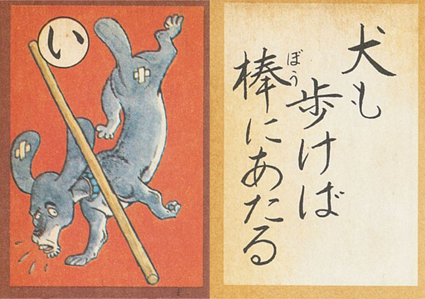 い
犬も
歩けば
棒にあたる
ぼう